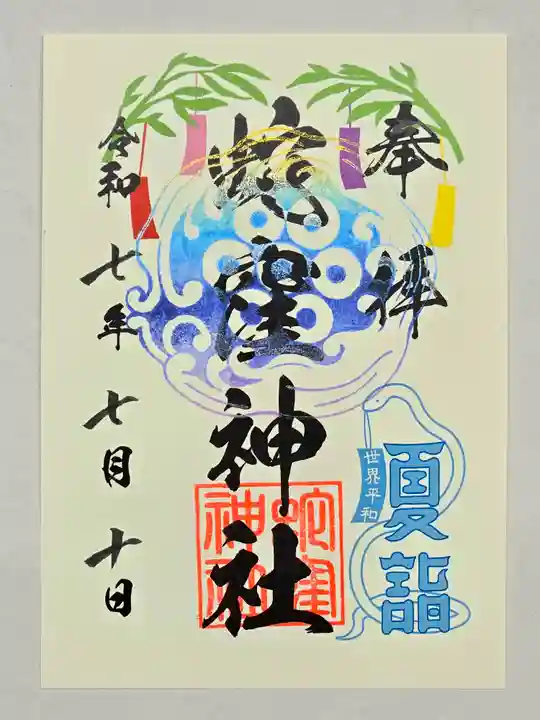 奉拝
蛇窪神社
蛇窪神社
夏詣
世界平和
令和七年七月十日